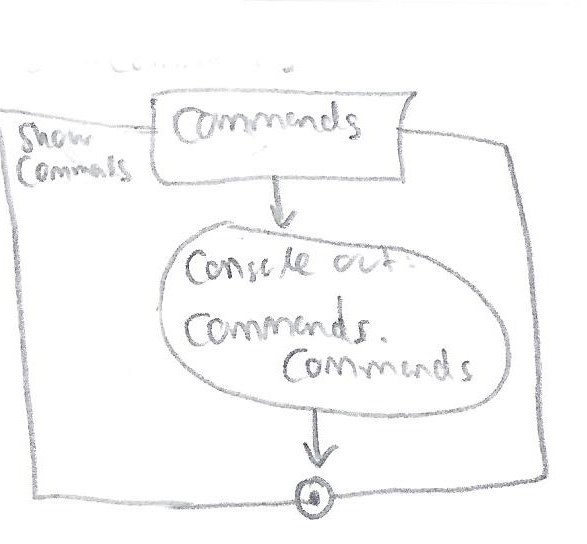 Commands
Show
Commands
Console out:
Commands.
Commands